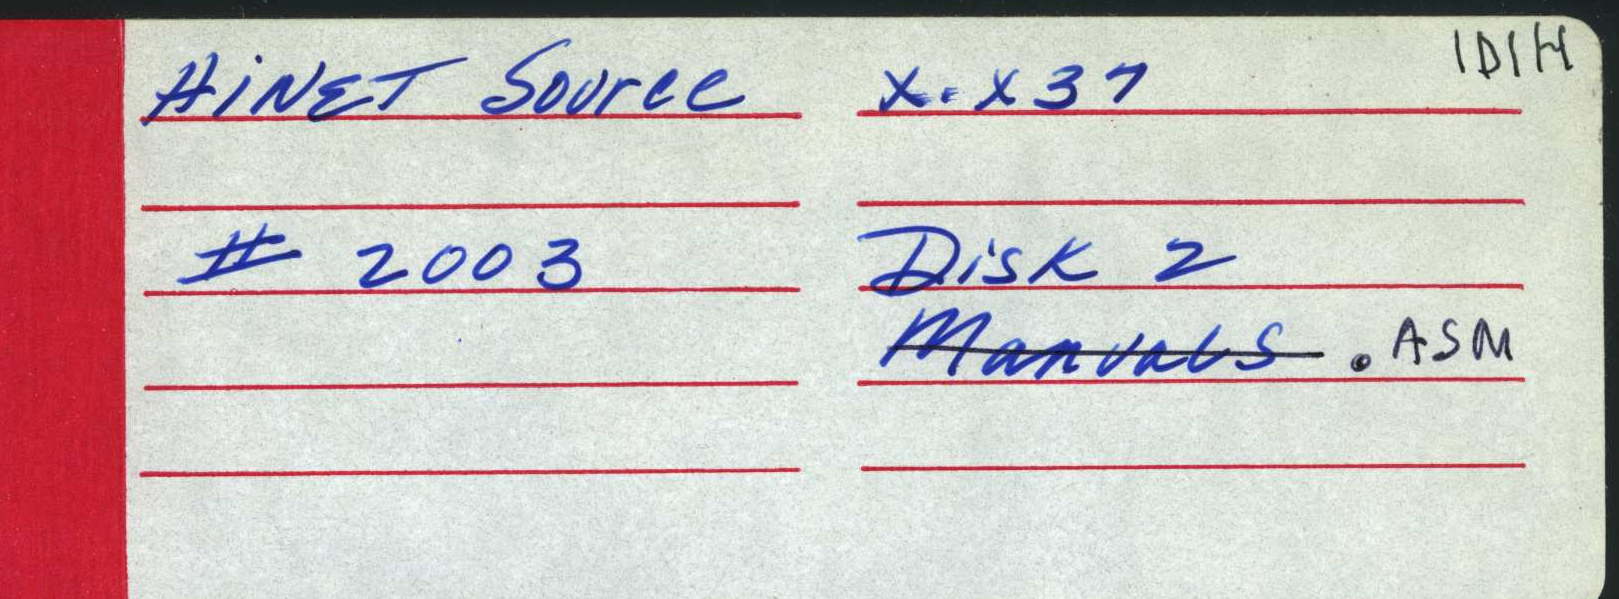 HiNET Source x.x37 1D1H
# 2003 Disk 2
Manuals .ASM